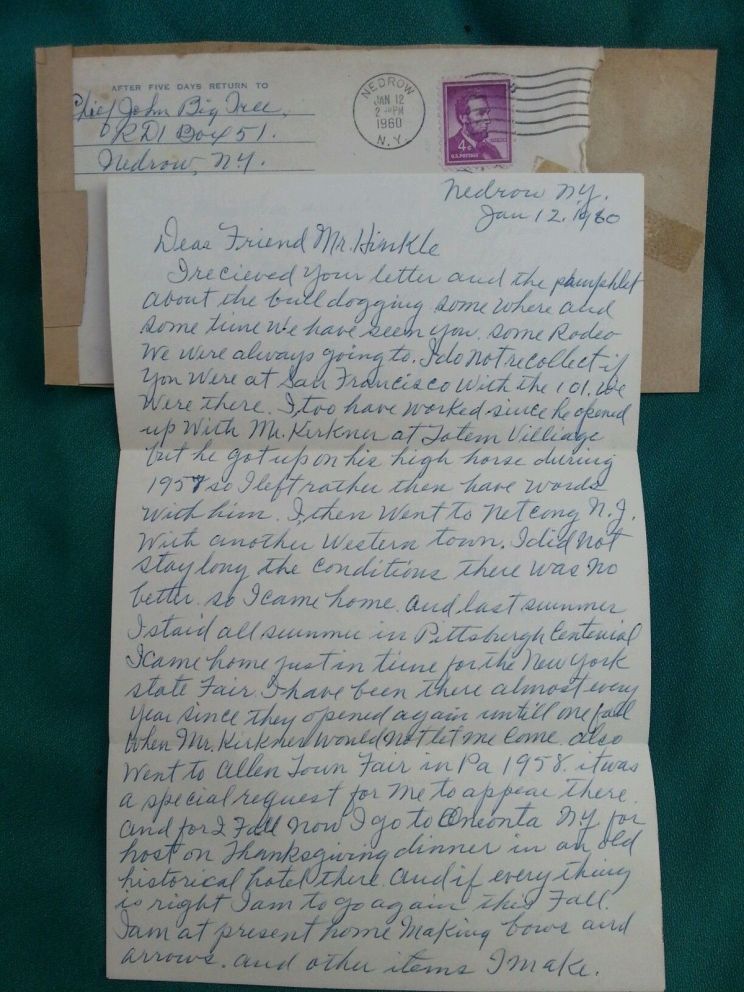 AFTER FIVE DAYS RETURN TO
Chief John Big Tree,
RD1 Box 51.
Nedrow, N.Y.
NEDROW
JAN 12
2 PM
1960
N.Y.
4¢
U.S. POSTAGE
Nedrow NY.
Jan 12. 1960
Dear Friend Mr. Hinkle
I recieved your letter and the pamphlet
about the bull dogging some where and
some time we have seen you. some Rodeo
We were always going to. I do not recollect if
You were at San Francisco with the 101. we
were there. I too have worked since he opened
up with Mr. Kirkner at Totem Villiage
but he got up on his high horse during
1957 so I left rather then have words
with him. I then went to Netcong N.J.
with another western town. I did not
stay long the conditions there was no
better. so I came home. and last summer
I staid all summer in Pittsburgh Centenial
I came home just in time for the New York
state Fair. I have been there almost every
year since they opened again untill one fall
when Mr. Kirkner would not let me come. also
went to Allen Town Fair in Pa 1958. it was
a special request for me to appear there.
and for 2 Fall now I go to Oneonta N.Y. for
host on Thanksgiving dinner in an old
historical hotel there. and if every thing
is right I am to go again this Fall.
I am at present home making bows and
arrows. and other items I make.